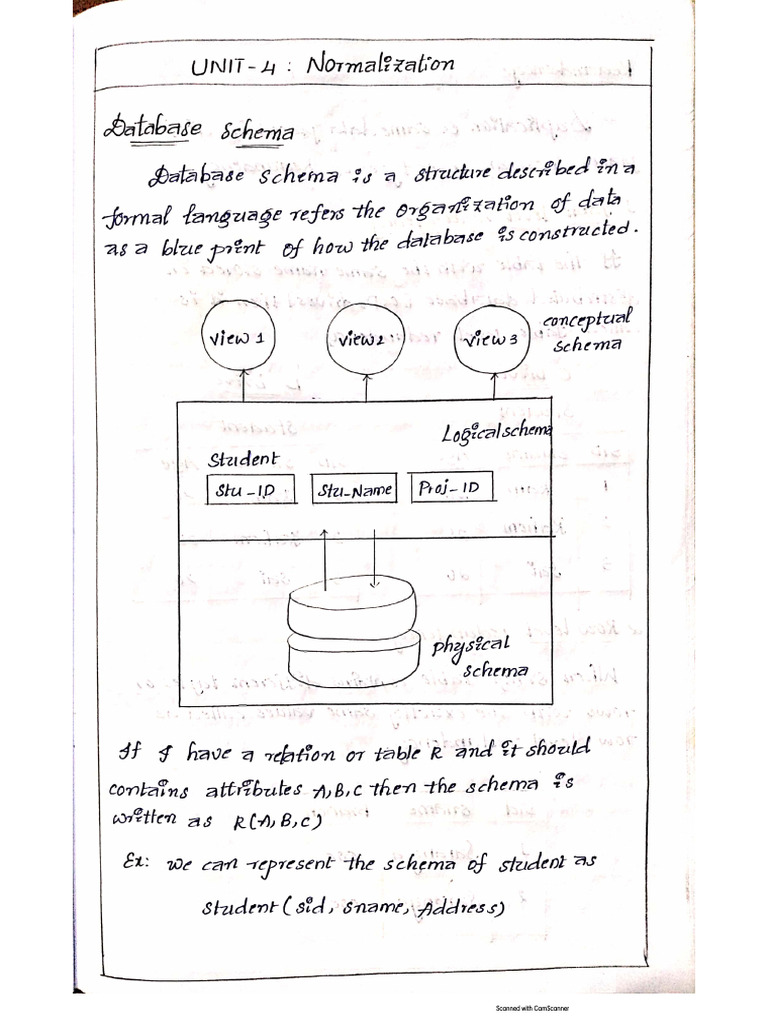 UNIT-4 : Normalization
Database Schema
Database Schema is a structure described in a
formal language refers the organization of data
as a blue print of how the database is constructed.
View 1
View 2
View 3
conceptual
Schema
Logical schema
Student
Stu-ID
Stu-Name
Proj-ID
physical
Schema
If I have a relation or table R and it should
contains attributes A,B,C then the schema is
written as R(A,B,C)
Ex: we can represent the schema of student as
Student (sid, sname, Address)
Scanned with CamScanner